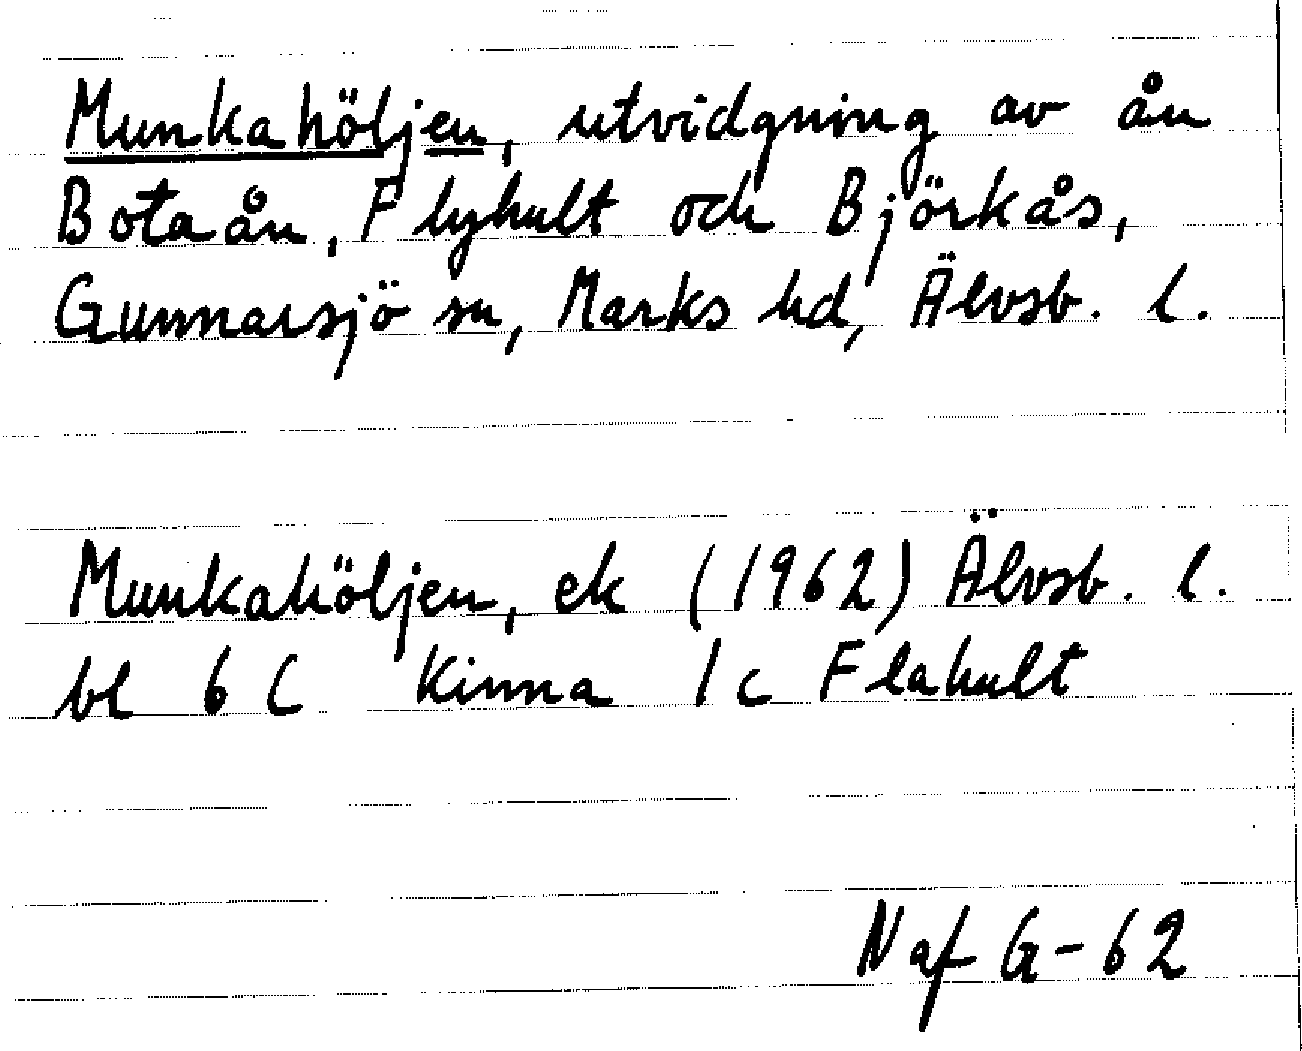 Munkahöljen, utvidgning av ån
Botaån, Flyhult och Björkås,
Gunnarsjö sn, Marks hd, Älvsb. l.
Munkahöljen, ek (1962) Älvsb. l.
bl 6 C Kinna 1 c Flahult
Naf G-62